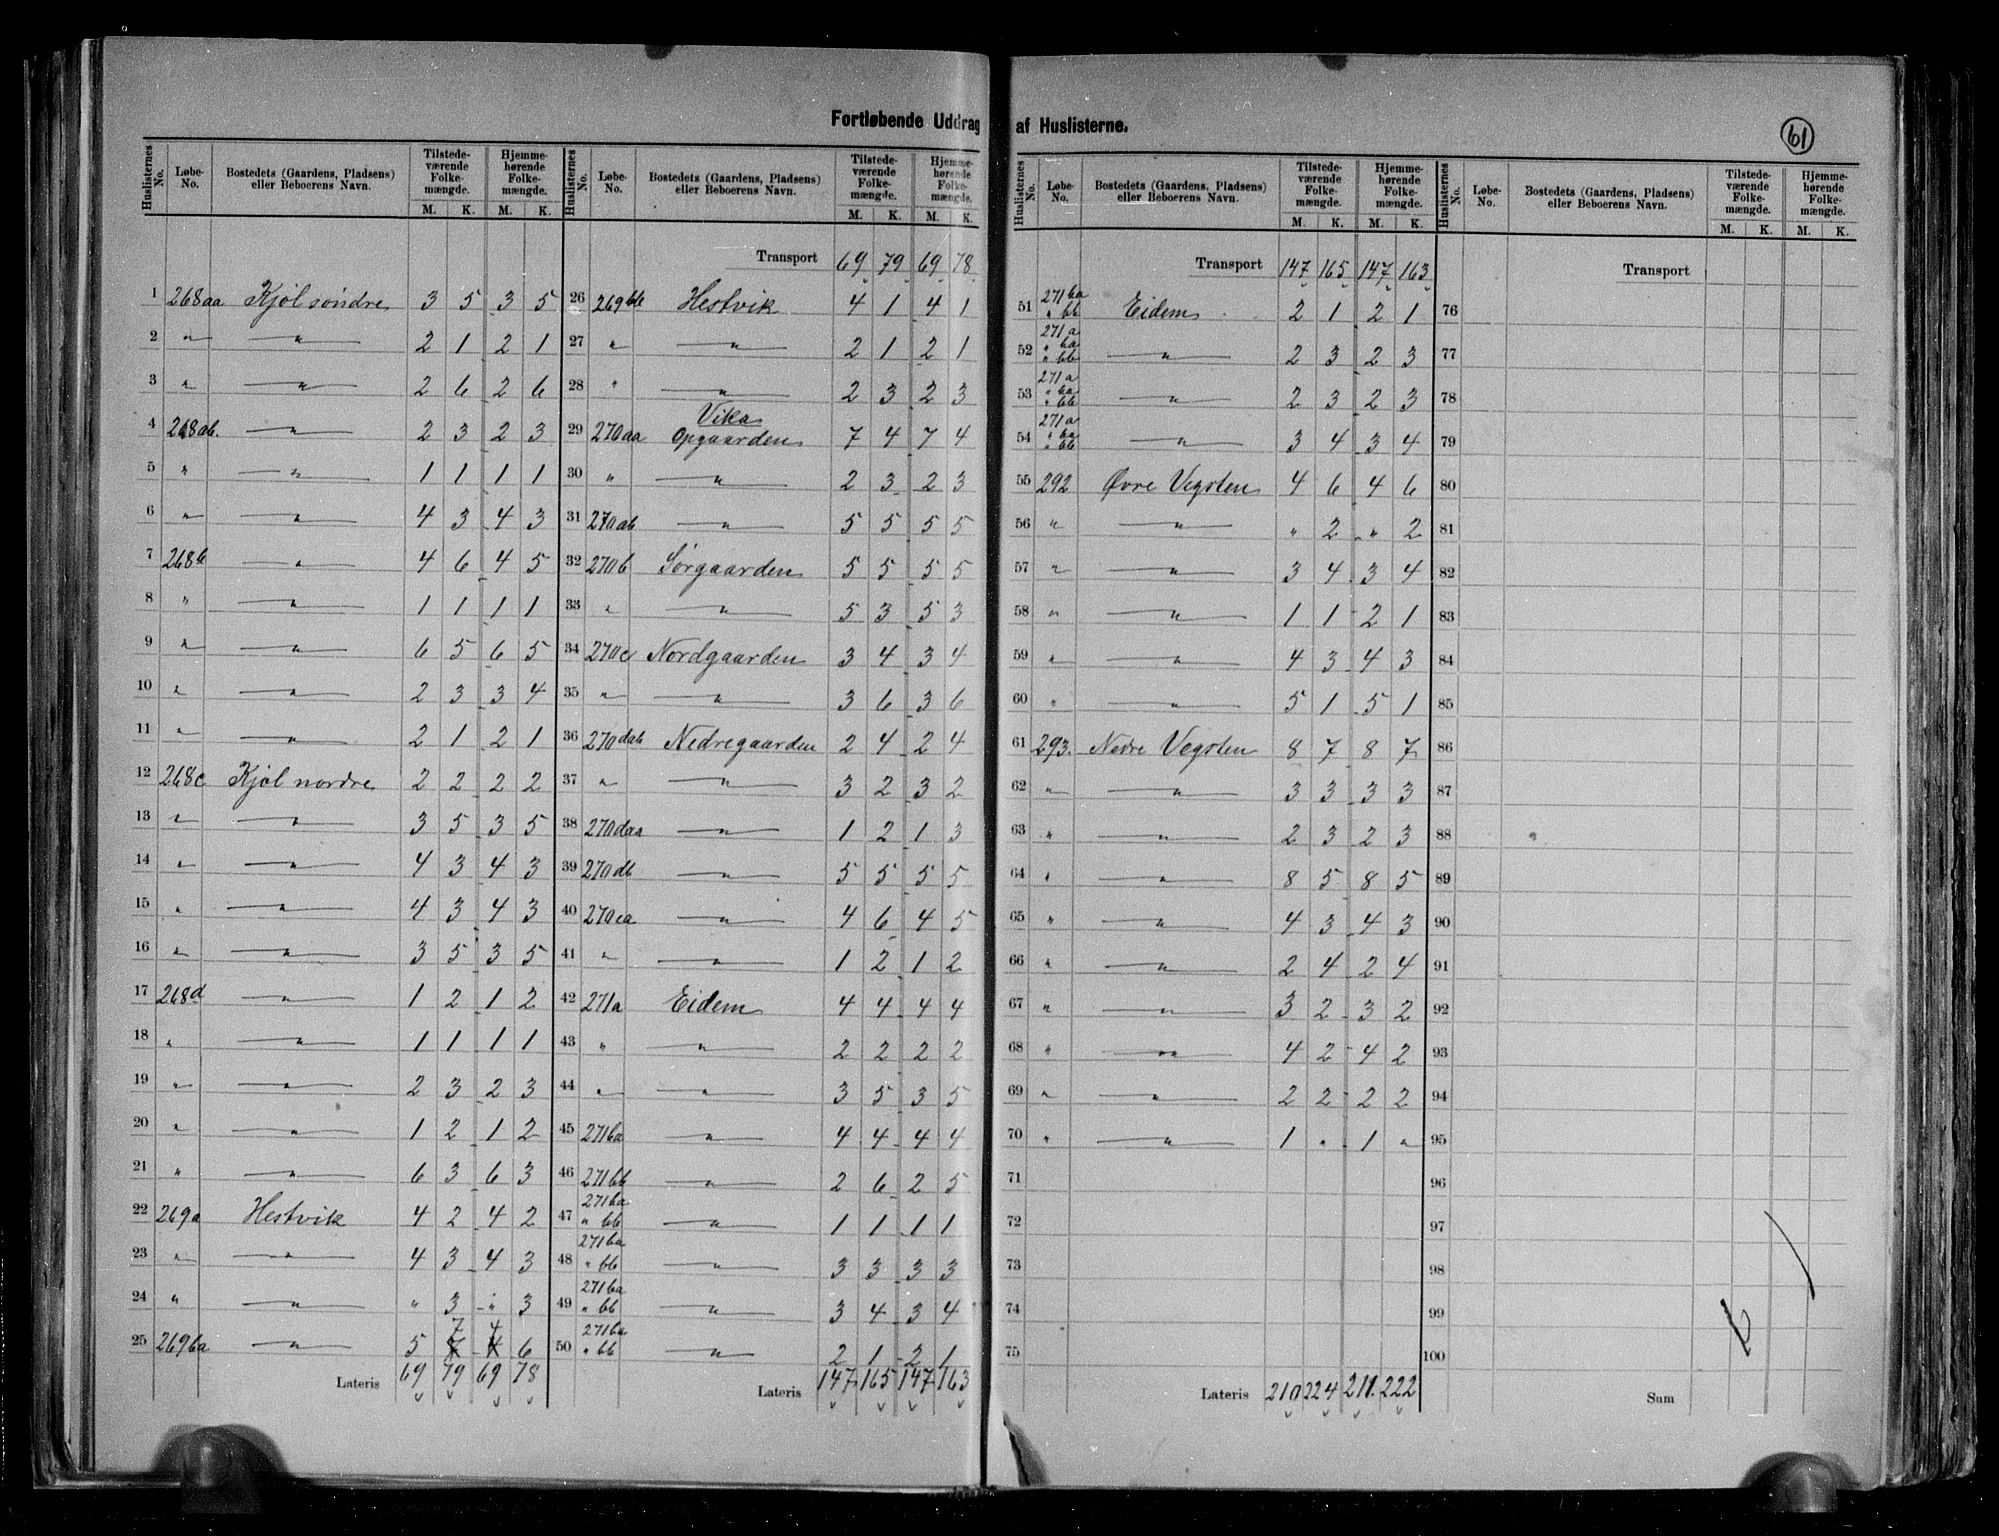 Fortløbende Uddrag af Huslisterne.
61
Huslisternes No. Løbe-No. Bostedets (Gaardens, Pladsens) eller Beboerens Navn. Tilstedeværende Folkemængde. M. K. Hjemmehørende Folkemængde. M. K.
1 268aa Kjøl søndre 3 5 3 5
2 " " 2 1 2 1
3 " " 2 6 2 6
4 268ab. " 2 3 2 3
5 " " 1 1 1 1
6 " " 4 3 4 3
7 268b " 4 6 4 5
8 " " 1 1 1 1
9 " " 6 5 6 5
10 " " 2 3 3 4
11 " " 2 1 2 1
12 268c Kjøl nordre 2 2 2 2
13 " " 3 5 3 5
14 " " 4 3 4 3
15 " " 4 3 4 3
16 " " 3 5 3 5
17 268d " 1 2 1 2
18 " " 1 1 1 1
19 " " 2 3 2 3
20 " " 1 2 1 2
21 " " 6 3 6 3
22 269a Hestvik 4 2 4 2
23 " " 4 3 4 3
24 " " " 3 " 3
25 269ba " 5 7 4 6
Lateris 69 79 69 78
Huslisternes No. Løbe-No. Bostedets (Gaardens, Pladsens) eller Beboerens Navn. Tilstedeværende Folkemængde. M. K. Hjemmehørende Folkemængde. M. K.
Transport 69 79 69 78
26 269bb Hestvik 4 1 4 1
27 " " 2 1 2 1
28 " " 2 3 2 3
Vika
29 270aa Opgaarden 7 4 7 4
30 " " 2 3 2 3
31 270ab " 5 5 5 5
32 270b Sørgaarden 5 5 5 5
33 " " 5 3 5 3
34 270c Nordgaarden 3 4 3 4
35 " " 3 6 3 6
36 270dab Nedregaarden 2 4 2 4
37 " " 3 2 3 2
38 270daa " 1 2 1 3
39 270db " 5 5 5 5
40 270ea " 4 6 4 5
41 " " 1 2 1 2
42 271a Eidem 4 4 4 4
43 " " 2 2 2 2
44 " " 3 5 3 5
45 271ba " 4 4 4 4
46 271bb " 2 6 2 5
271ba
47 " bb " 1 1 1 1
271ba
48 " bb " 3 3 3 3
271ba
49 " bb " 3 4 3 4
271ba
50 " bb " 2 1 2 1
Lateris 147 165 147 163
Huslisternes No. Løbe-No. Bostedets (Gaardens, Pladsens) eller Beboerens Navn. Tilstedeværende Folkemængde. M. K. Hjemmehørende Folkemængde. M. K.
Transport 147 165 147 163
271ba
51 " bb Eidem 2 1 2 1
271a
" ba
52 " bb " 2 3 2 3
271a
" ba
53 " bb " 2 3 2 3
271a
" ba
54 " bb " 3 4 3 4
55 292 Øvre Vegsten 4 6 4 6
56 " " " 2 " 2
57 " " 3 4 3 4
58 " " 1 1 2 1
59 " " 4 3 4 3
60 " " 5 1 5 1
61 293. Nedre Vegsten 8 7 8 7
62 " " 3 3 3 3
63 " " 2 3 2 3
64 " " 8 5 8 5
65 " " 4 3 4 3
66 " " 2 4 2 4
67 " " 3 2 3 2
68 " " 4 2 4 2
69 " " 2 2 2 2
70 " " 1 " 1 "
71
72
73
74
75
Lateris 210 224 211. 222
Huslisternes No. Løbe-No. Bostedets (Gaardens, Pladsens) eller Beboerens Navn. Tilstedeværende Folkemængde. M. K. Hjemmehørende Folkemængde. M. K.
Transport
76
77
78
79
80
81
82
83
84
85
86
87
88
89
90
91
92
93
94
95
96
97
98
99
100
Sum